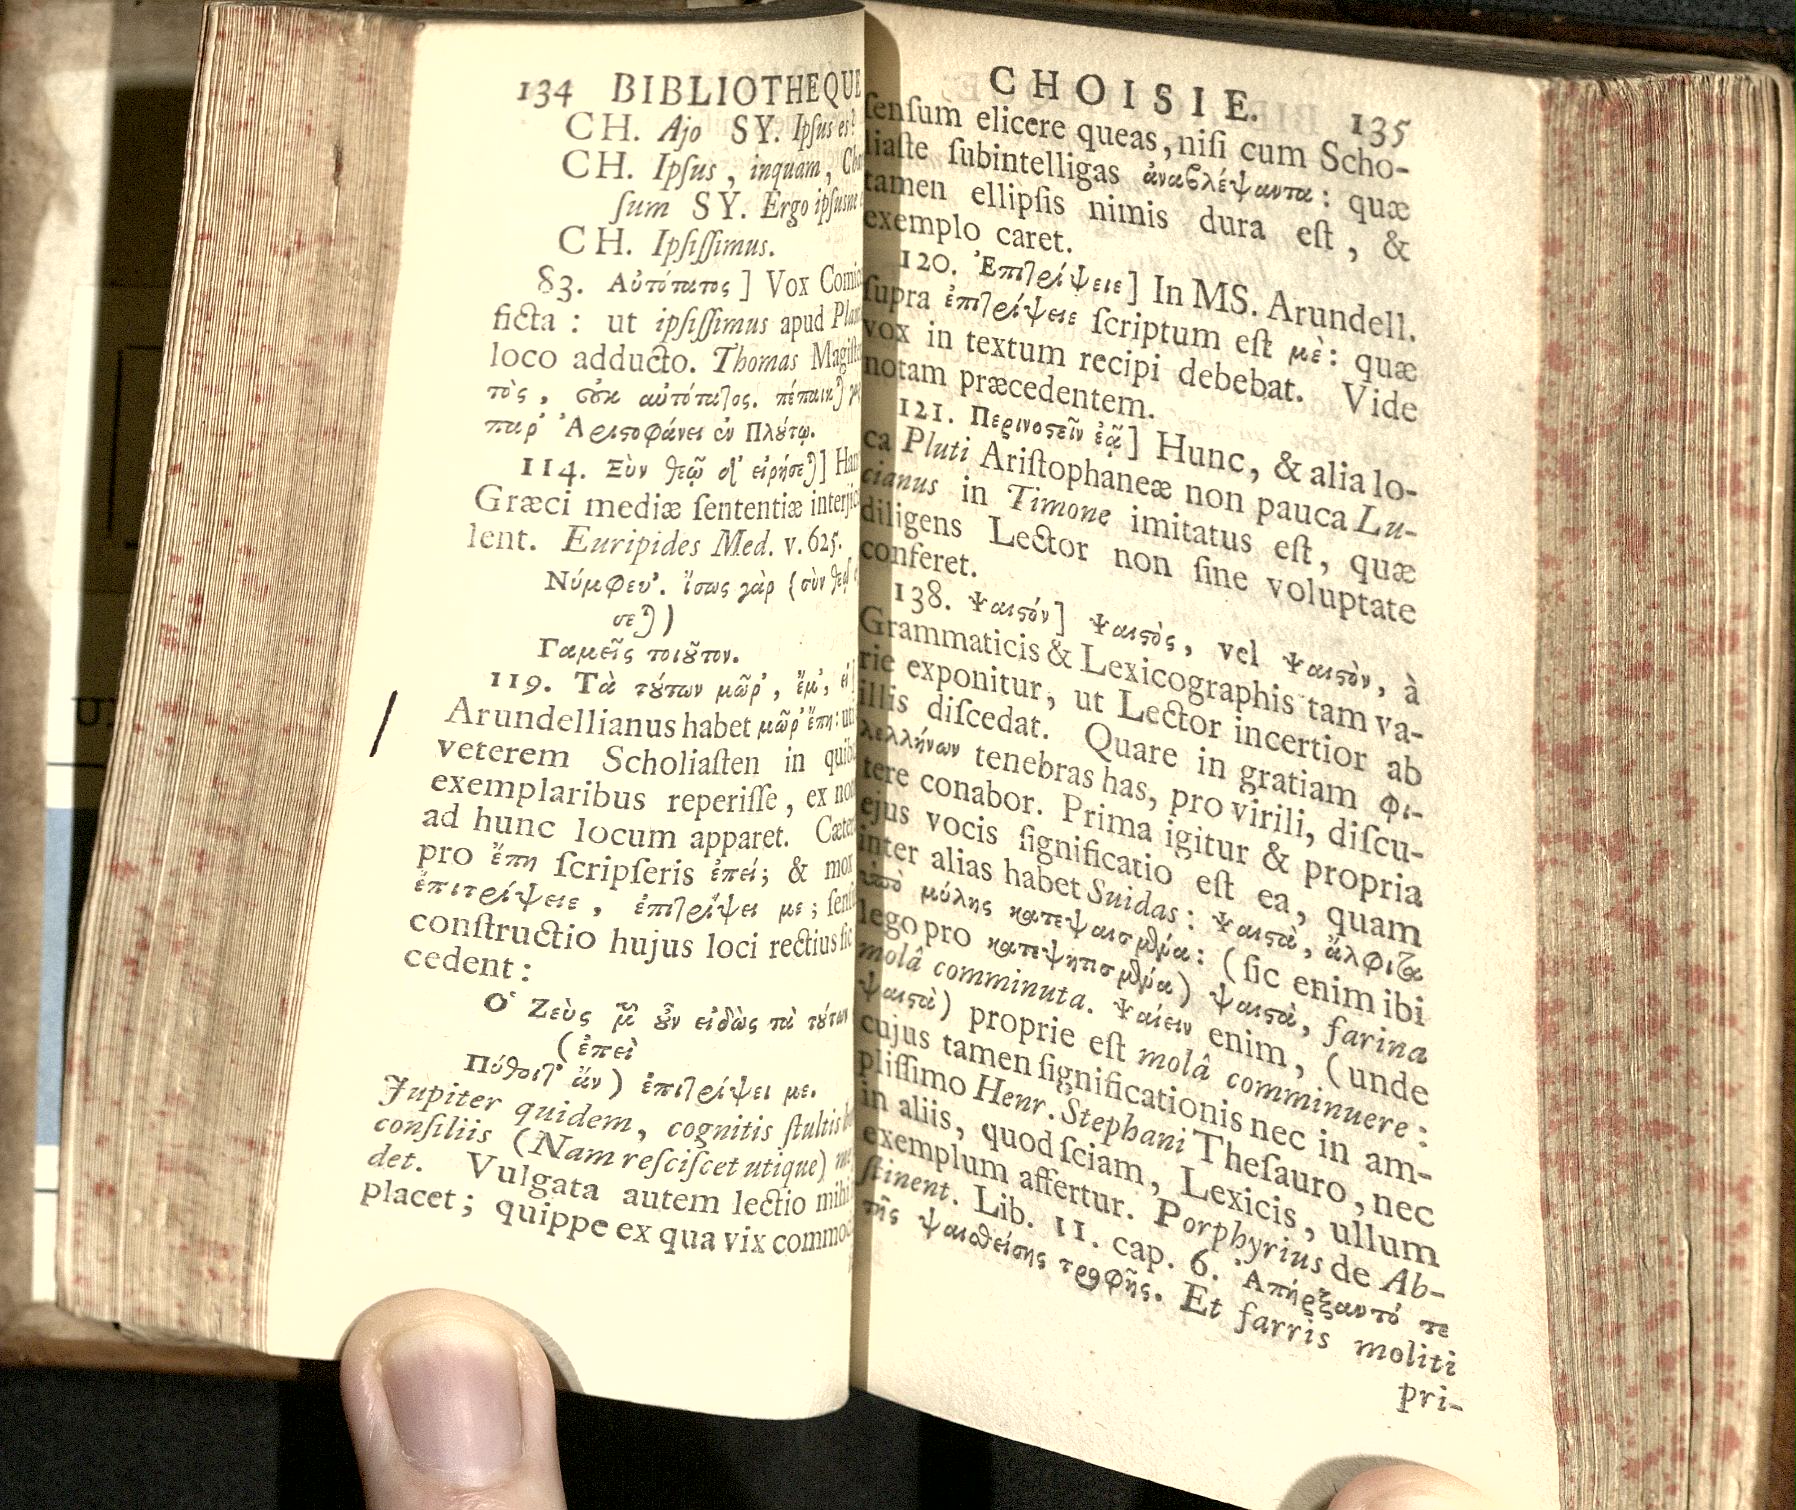 134 BIBLIOTHEQUE
CH. Ajo SY. Ipsus es?
CH. Ipsus, inquam,
ſum SY. Ergo ipſusne
CH. Ipſiſſimus.
83. Αὐτότατος] Vox
ficta: ut ipſiſſimus apud
loco adducto. Thomas
τὸς, οὐκ αὐτότατος. πέπαικται
παρ' Ἀριστοφάνει ἐν Πλούτῳ.
114. Ξὺν θεῷ δ' εἰρήσεται]
Græci mediæ ſententiæ
lent. Euripides Med. v. 625.
Νύμφευ'. ἴσως γὰρ (σὺν
σεται)
Γαμεῖς τοιοῦτον.
119. Τὰ τούτων μῶρ', ἔμ',
Arundellianus habet μῶρ' ἔπη:
veterem Scholiaſten in
exemplaribus reperiſſe, ex
ad hunc locum apparet.
pro ἔπη ſcripſeris ἐπεί; & mox
ἐπιτρίψειε, ἐπιτρίψει με;
conſtructio hujus loci rectius
cedent:
Ὁ Ζεὺς μὲν οὖν εἰδὼς τὰ τούτων
(ἐπεὶ
Πύθοιτ' ἄν) ἐπιτρίψει με.
Jupiter quidem, cognitis ſtultis
conſiliis (Nam reſciſcet utique)
det. Vulgata autem lectio mihi
placet; quippe ex qua vix
CHOISIE. 135
ſenſum elicere queas, niſi cum Scho-
liaſte ſubintelligas ἀναβλέψαντα: quæ
tamen ellipſis nimis dura eſt, &
exemplo caret.
120. Ἐπιτρίψειε] In MS. Arundell.
ſupra ἐπιτρίψειε ſcriptum eſt μὲ: quæ
vox in textum recipi debebat. Vide
notam præcedentem.
121. Περινοστεῖν ἐᾷ] Hunc, & alia lo-
ca Pluti Ariſtophaneæ non pauca Lu-
cianus in Timone imitatus eſt, quæ
diligens Lector non ſine voluptate
conferet.
138. Ψαιστόν] Ψαιστὸς, vel Ψαιστὸν, à
Grammaticis & Lexicographis tam va-
rie exponitur, ut Lector incertior ab
illis diſcedat. Quare in gratiam φι-
λελλήνων tenebras has, pro virili, diſcu-
tere conabor. Prima igitur & propria
ejus vocis ſignificatio eſt ea, quam
inter alias habet Suidas: Ψαιστὰ, ἄλφιτα
ἀπὸ μύλης κατεψαισμένα: (ſic enim ibi
lego pro κατεψησμένα) ψαιστὰ, farina
molâ comminuta. Ψαίειν enim, (unde
ψαιστὰ) proprie eſt molâ comminuere:
cujus tamen ſignificationis nec in am-
pliſſimo Henr. Stephani Theſauro, nec
in aliis, quod ſciam, Lexicis, ullum
exemplum affertur. Porphyrius de Ab-
ſtinent. Lib. II. cap. 6. Ἀπήρξαντό τε
τῆς ψαισθείσης τροφῆς. Et farris moliti
pri-